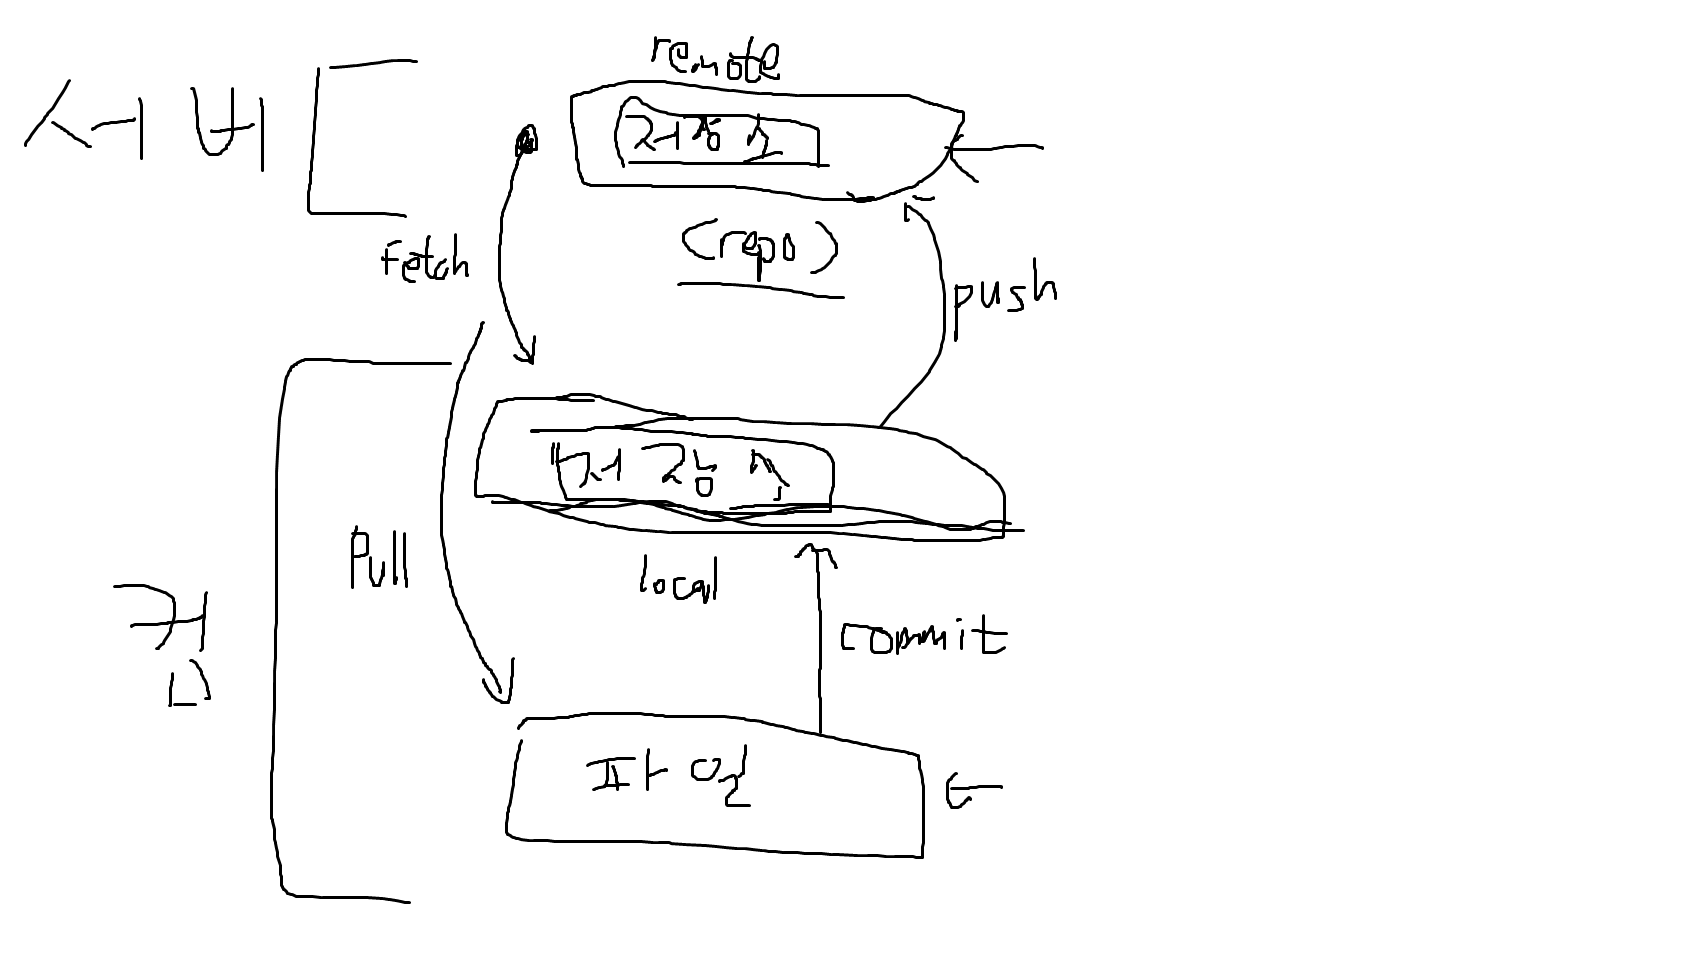 remote
서버
저장소
(repo)
Fetch
push
저장소
Pull
local
컴
commit
파일